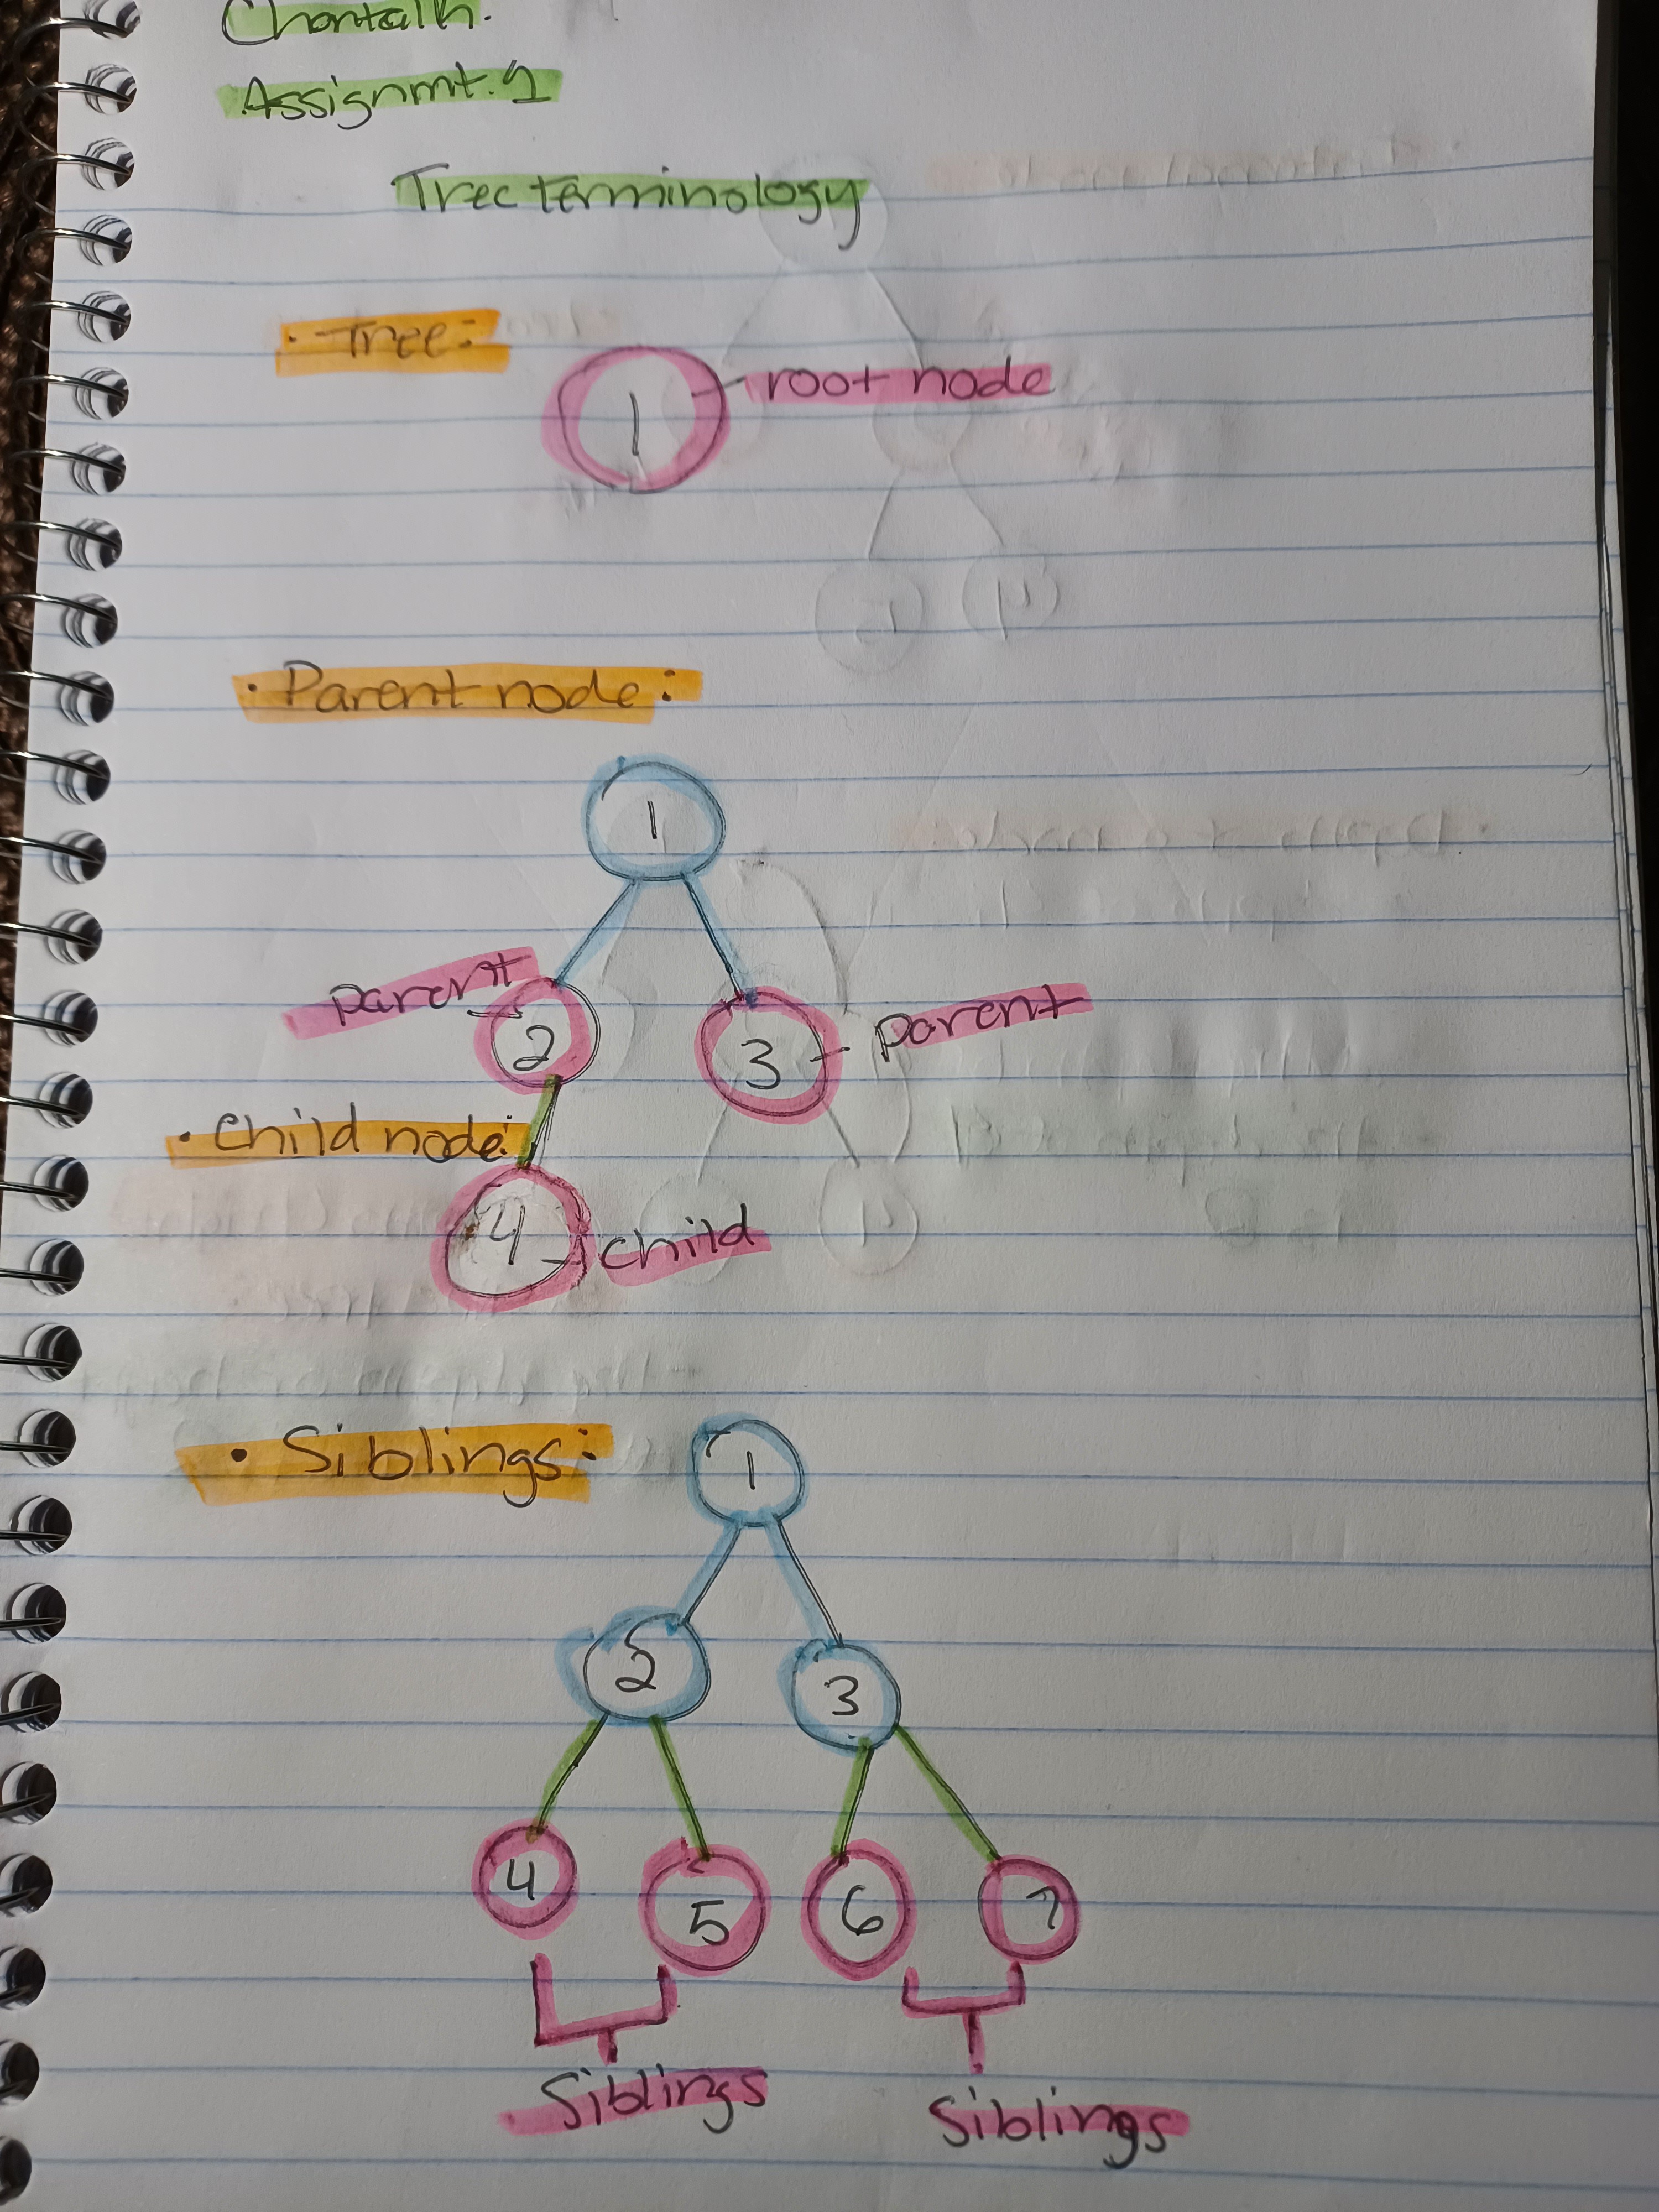 Chantal h.
Assignmt. 1
Tree terminology
• Tree:
1 - root node
• Parent node:
1
parent - 2
3 - parent
• Child node:
4 - child
• Siblings:
1
2 3
4 5 6 7
Siblings Siblings